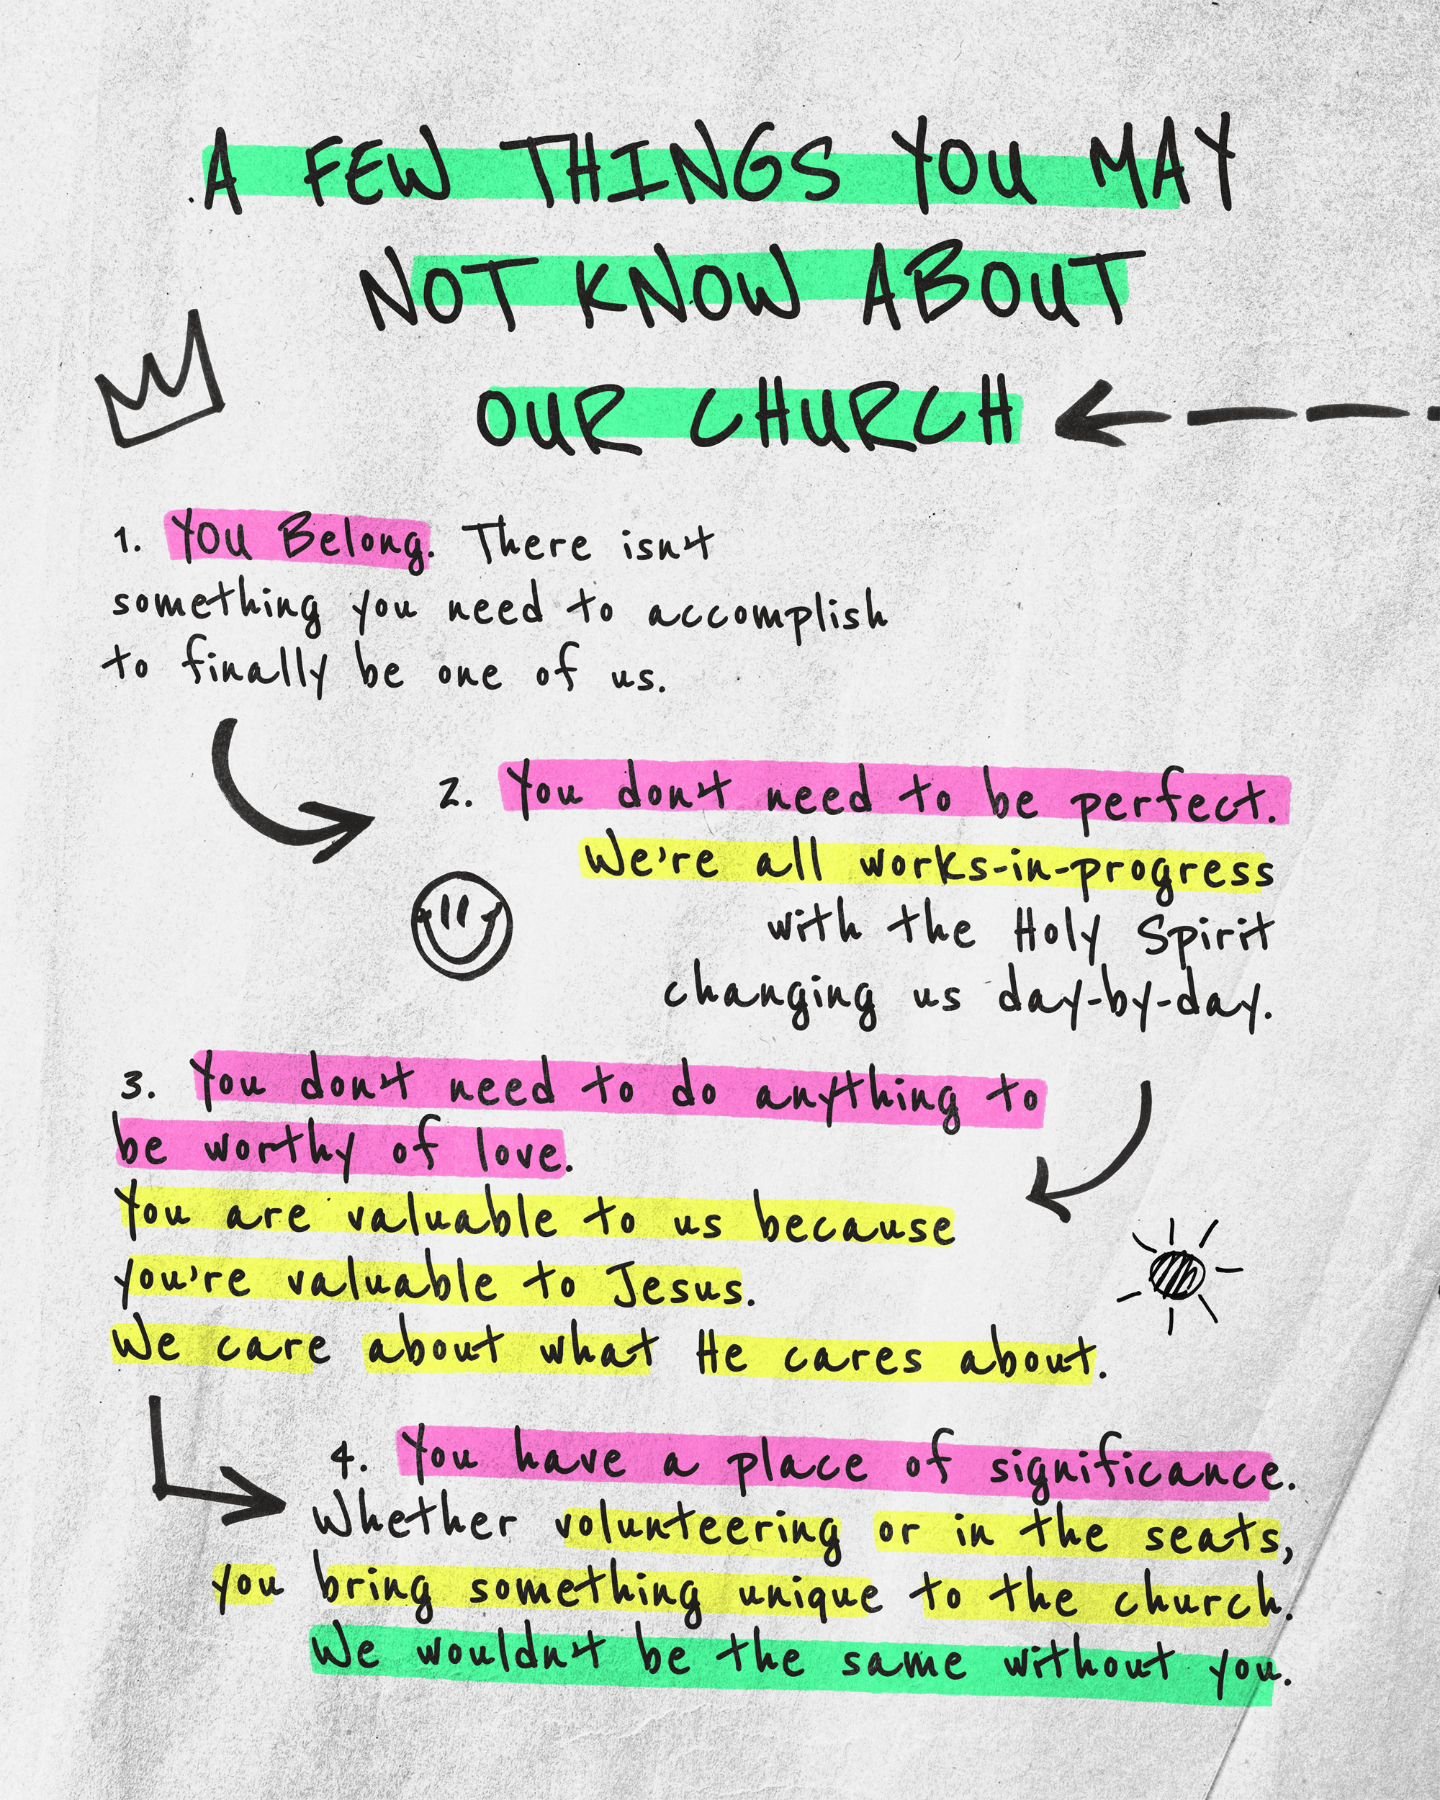 A FEW THINGS YOU MAY
NOT KNOW ABOUT
OUR CHURCH
1. You Belong. There isn't
something you need to accomplish
to finally be one of us.
2. You don't need to be perfect.
We're all works-in-progress
with the Holy Spirit
changing us day-by-day.
3. You don't need to do anything to
be worthy of love.
You are valuable to us because
you're valuable to Jesus.
We care about what He cares about.
4. You have a place of significance.
Whether volunteering or in the seats,
you bring something unique to the church.
We wouldn't be the same without you.